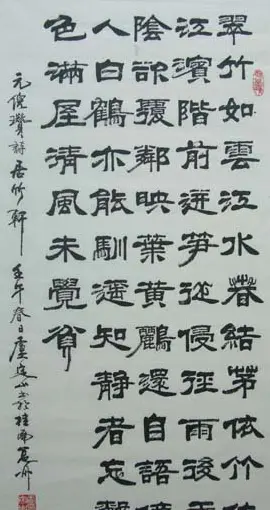 翠竹如雲江水春結茅依竹
江濱階前迸筍從侵徑雨後
陰欲覆鄰映葉黃鸝還自語
人白鶴亦能馴遙知靜者忘
色滿屋清風未覺貧
元倪瓚詩居竹軒 壬午春日盧 山書於桂南